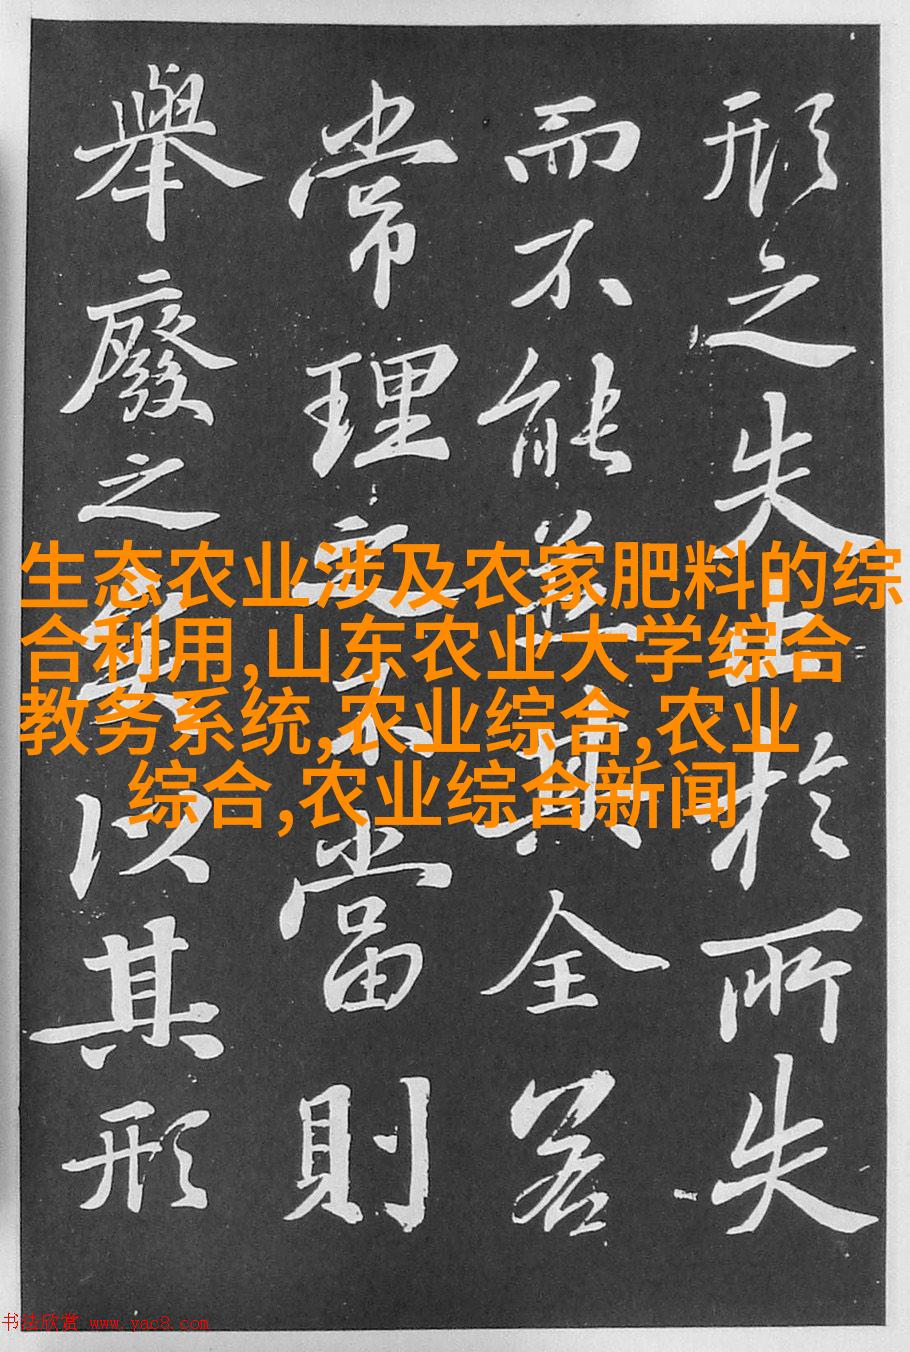 形之失止於所失
而不能其全若
常理之不當則
舉廢之矣以其形
生态农业涉及农家肥料的综
合利用,山东农业大学综合
教务系统,农业综合,农业
综合,农业综合新闻
书法欣赏 www.yac8.com